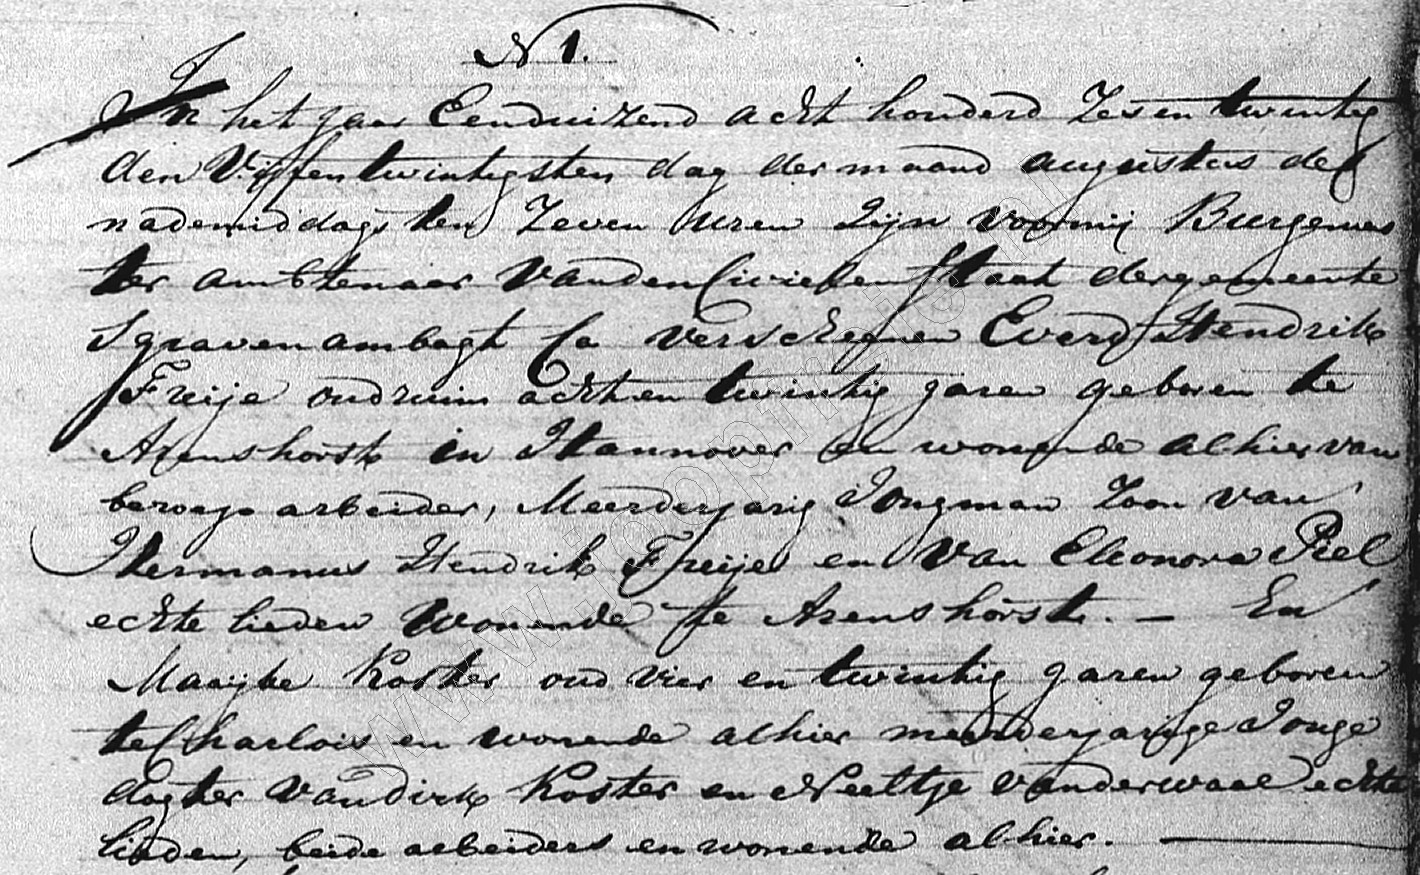 N 1.
In het Jaar Eenduizend acht honderd Zes en twintig
den Vijffentwintigsten dag der maand augustus des
nademiddags ten Zeven uren Zijn Voormij Burgemees
ter ambtenaar Vanden Civielen Staat dergemeente
Sgravenambagt Ca verschegnen Everd Hendrik
Freije oud ruim acht en twintig Jaren geboren te
Arenshorst in Hannover en wonende alhier van
beroep arbeider, Meerderjarig Jongman Zoon van
Hermanus Hendrik Freije en Van Eleonora Piel
echte lieden Wonende te Arenshorst. — En
Maaijke Koster oud vier en twintig Jaren geboren
te Charlois en wonende alhier meerderjarige Jonge
dogter Van dirk Koster en Neeltje Vanderwaal echte
lieden, beide arbeiders en wonende alhier. —